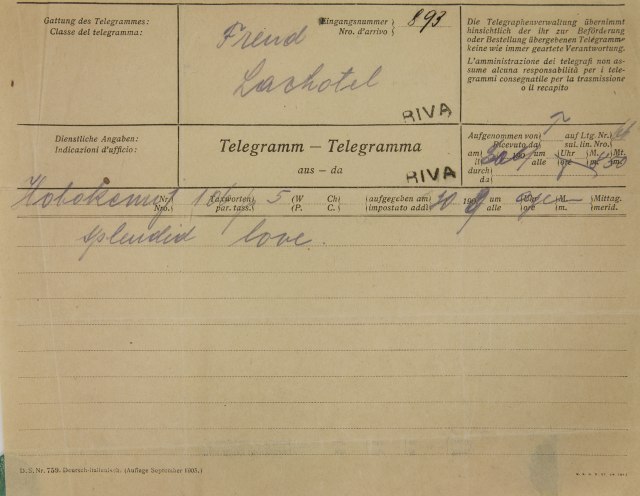 Gattung des Telegrammes:
Classe del telegramma:
Freud
Lachotel
Eingangsnummer
Nro. d'arrivo
893
Die Telegraphenverwaltung übernimmt
hinsichtlich der ihr zur Beförderung
oder Bestellung übergebenen Telegramme
keine wie immer geartete Verantwortung.
L'amministrazione dei telegrafi non as-
sume alcuna responsabilità per i tele-
grammi consegnatile per la trasmissione
o il recapito
RIVA
Dienstliche Angaben:
Indicazioni d'ufficio:
Telegramm – Telegramma
aus – da
RIVA
Aufgenommen von auf Ltg. Nr.
Ricevuto da sui. lin. Nro.
am um Uhr M. Mt.
il alle ore m.
durch
da
Nr. Taxworten (W Ch) aufgegeben am um Uhr M. Mittag.
Nro. par. tass. (P. C.) impostato addì alle ore m. merid.
5 30 190
splendid love.
D. S. Nr. 759. Deutsch-italienisch. (Auflage September 1905.)